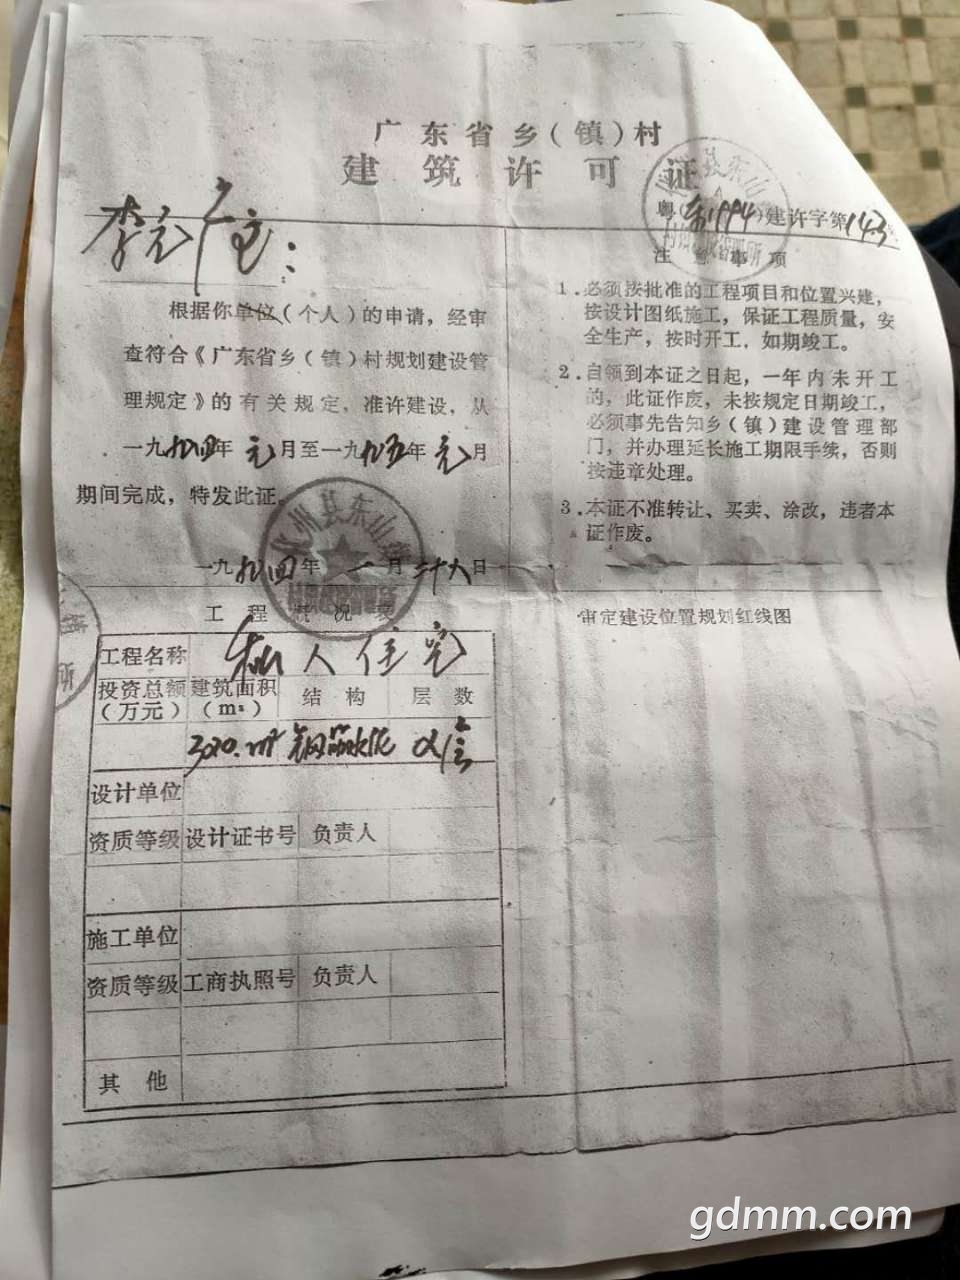 广东省乡(镇)村
建筑许可证
粤(东1994)建许字第143
李元广宅:
根据你单位(个人)的申请,经审
查符合《广东省乡(镇)村规划建设管
理规定》的有关规定,准许建设,从
一九九四年元月至一九九五年元月
期间完成,特发此证。
州县东山
一九九四年一月二十八日
注意事项
1.必须按批准的工程项目和位置兴建,
按设计图纸施工,保证工程质量,安
全生产,按时开工,如期竣工。
2.自领到本证之日起,一年内未开工
的,此证作废,未按规定日期竣工,
必须事先告知乡(镇)建设管理部
门,并办理延长施工期限手续,否则
按违章处理。
3.本证不准转让、买卖、涂改,违者本
证作废。
工程概况表
工程名称 私人住宅
投资总额(万元) 建筑面积(m²) 结构 层数
m² 钢筋水泥
设计单位
资质等级 设计证书号 负责人
施工单位
资质等级 工商执照号 负责人
其他
审定建设位置规划红线图
gdmm.com